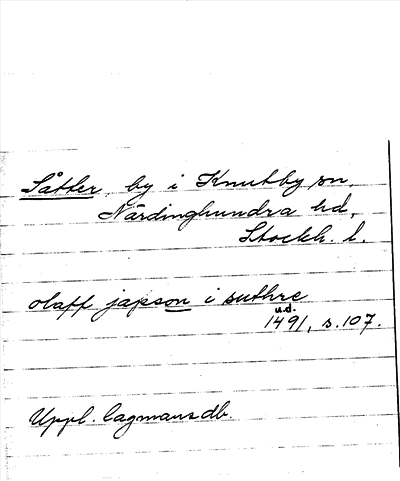 Såtter, by i Knutby sn,
Närdinghundra hd,
Stockh. l.
olaff japson i suthre
u.d.
1491, s. 107.
Uppl. lagmansdb.